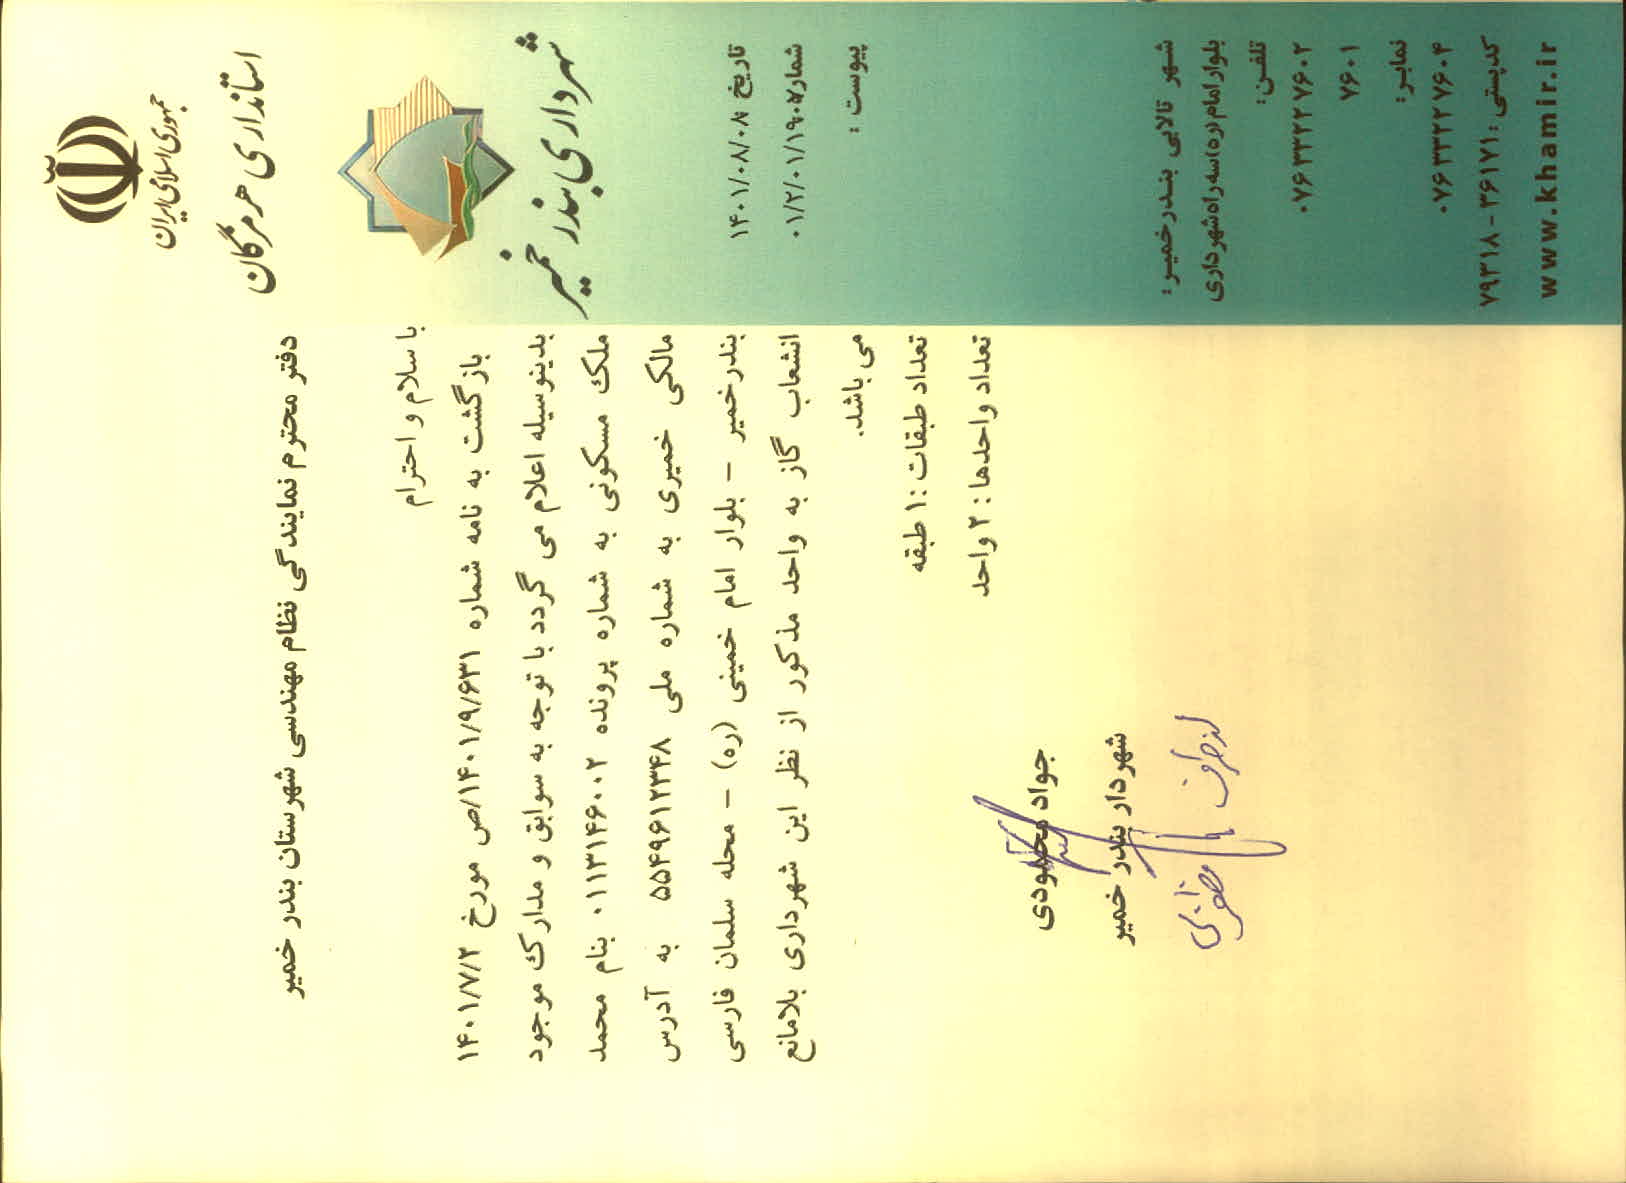 جمهوری اسلامی ایران
استانداری هرمزگان
شهرداری بندر خمیر
تاریخ ۱۴۰۱/۰۸/۰۸
شماره ۰۱/۲/۰۱/۱۹۰۷
پیوست :
دفتر محترم نمایندگی نظام مهندسی شهرستان بندر خمیر
با سلام و احترام
بازگشت به نامه شماره ۱۴۰۱/۹/۶۳۱/ص مورخ ۱۴۰۱/۷/۲
بدینوسیله اعلام می گردد با توجه به سوابق و مدارک موجود
ملک مسکونی به شماره پرونده ۰۱۱۳۱۴۶۰۰۲ بنام محمد
مالکی خمیری به شماره ملی ۵۵۴۹۶۱۲۳۴۸ به آدرس
بندرخمیر – بلوار امام خمینی (ره) – محله سلمان فارسی
انشعاب گاز به واحد مذکور از نظر این شهرداری بلامانع
می باشد.
تعداد طبقات :۱ طبقه
تعداد واحدها : ۲ واحد
جواد محمودی
شهردار بندر خمیر
از طرف
شهر تالابی بندرخمیر:
بلوار امام(ره)سه راه شهرداری
تلفن:
۰۷۶۳۳۲۲۷۶۰۲
۷۶۰۱
نمابر:
۰۷۶۳۳۲۲۷۶۰۴
کدپستی : ۳۶۱۷۱ - ۷۹۳۱۸
www.khamir.ir